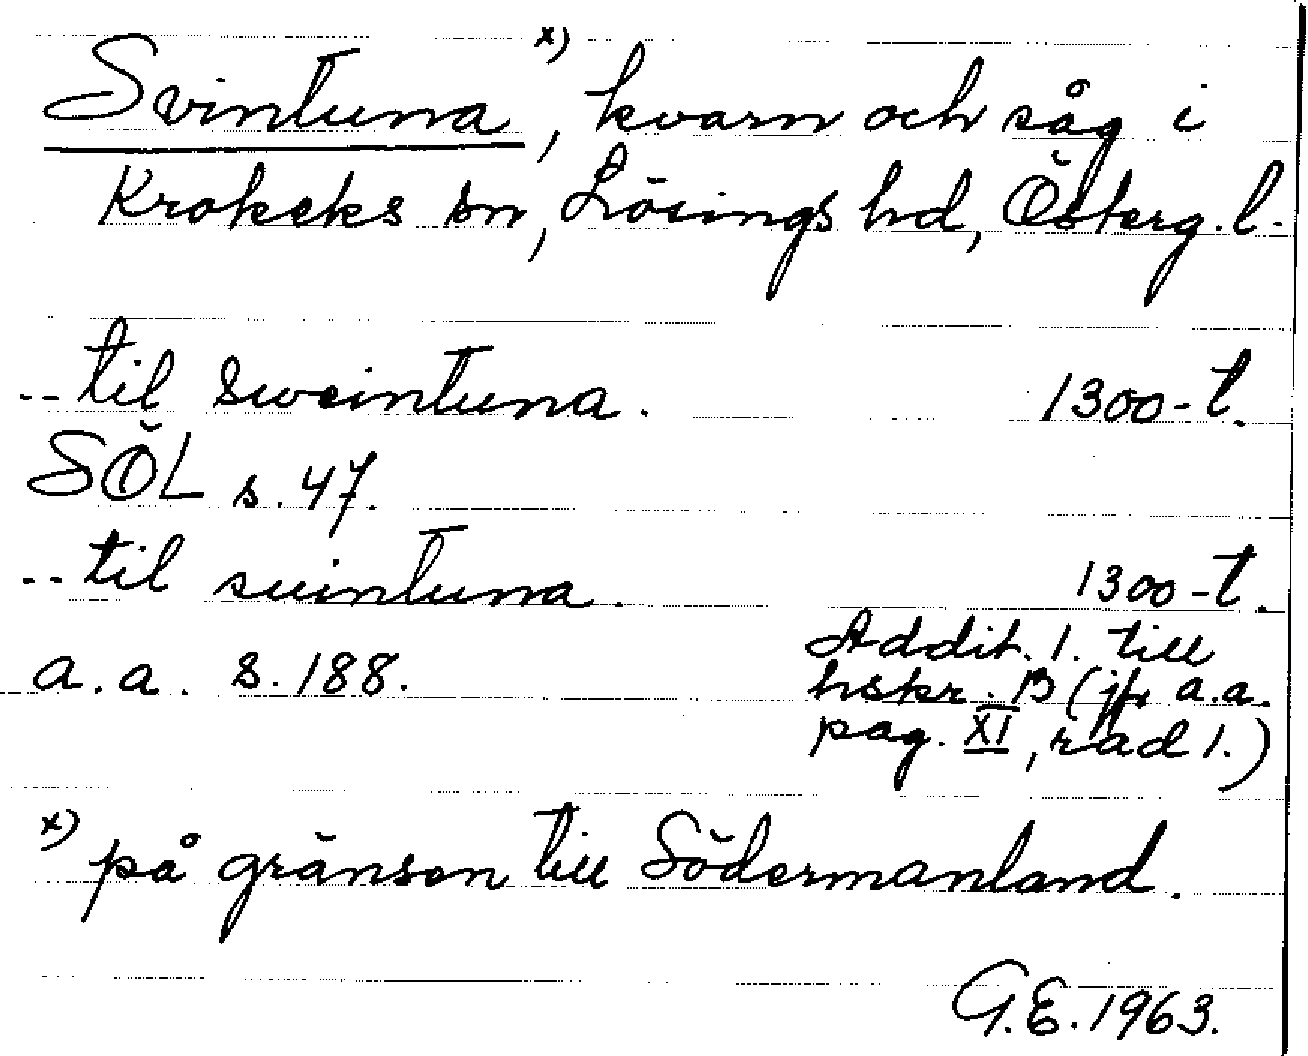 Svintuna x), kvarn och såg i
Krokeks sn, Lösings hd, Österg. l.
-- til sweintuna. 1300-t.
SÖL s. 47.
-- til suintuna. 1300-t.
a. a. s. 188.
Addit. 1. till
hskr. B (jfr a.a.
pag. XI, rad 1.)
x) på gränsen till Södermanland.
G.E. 1963.